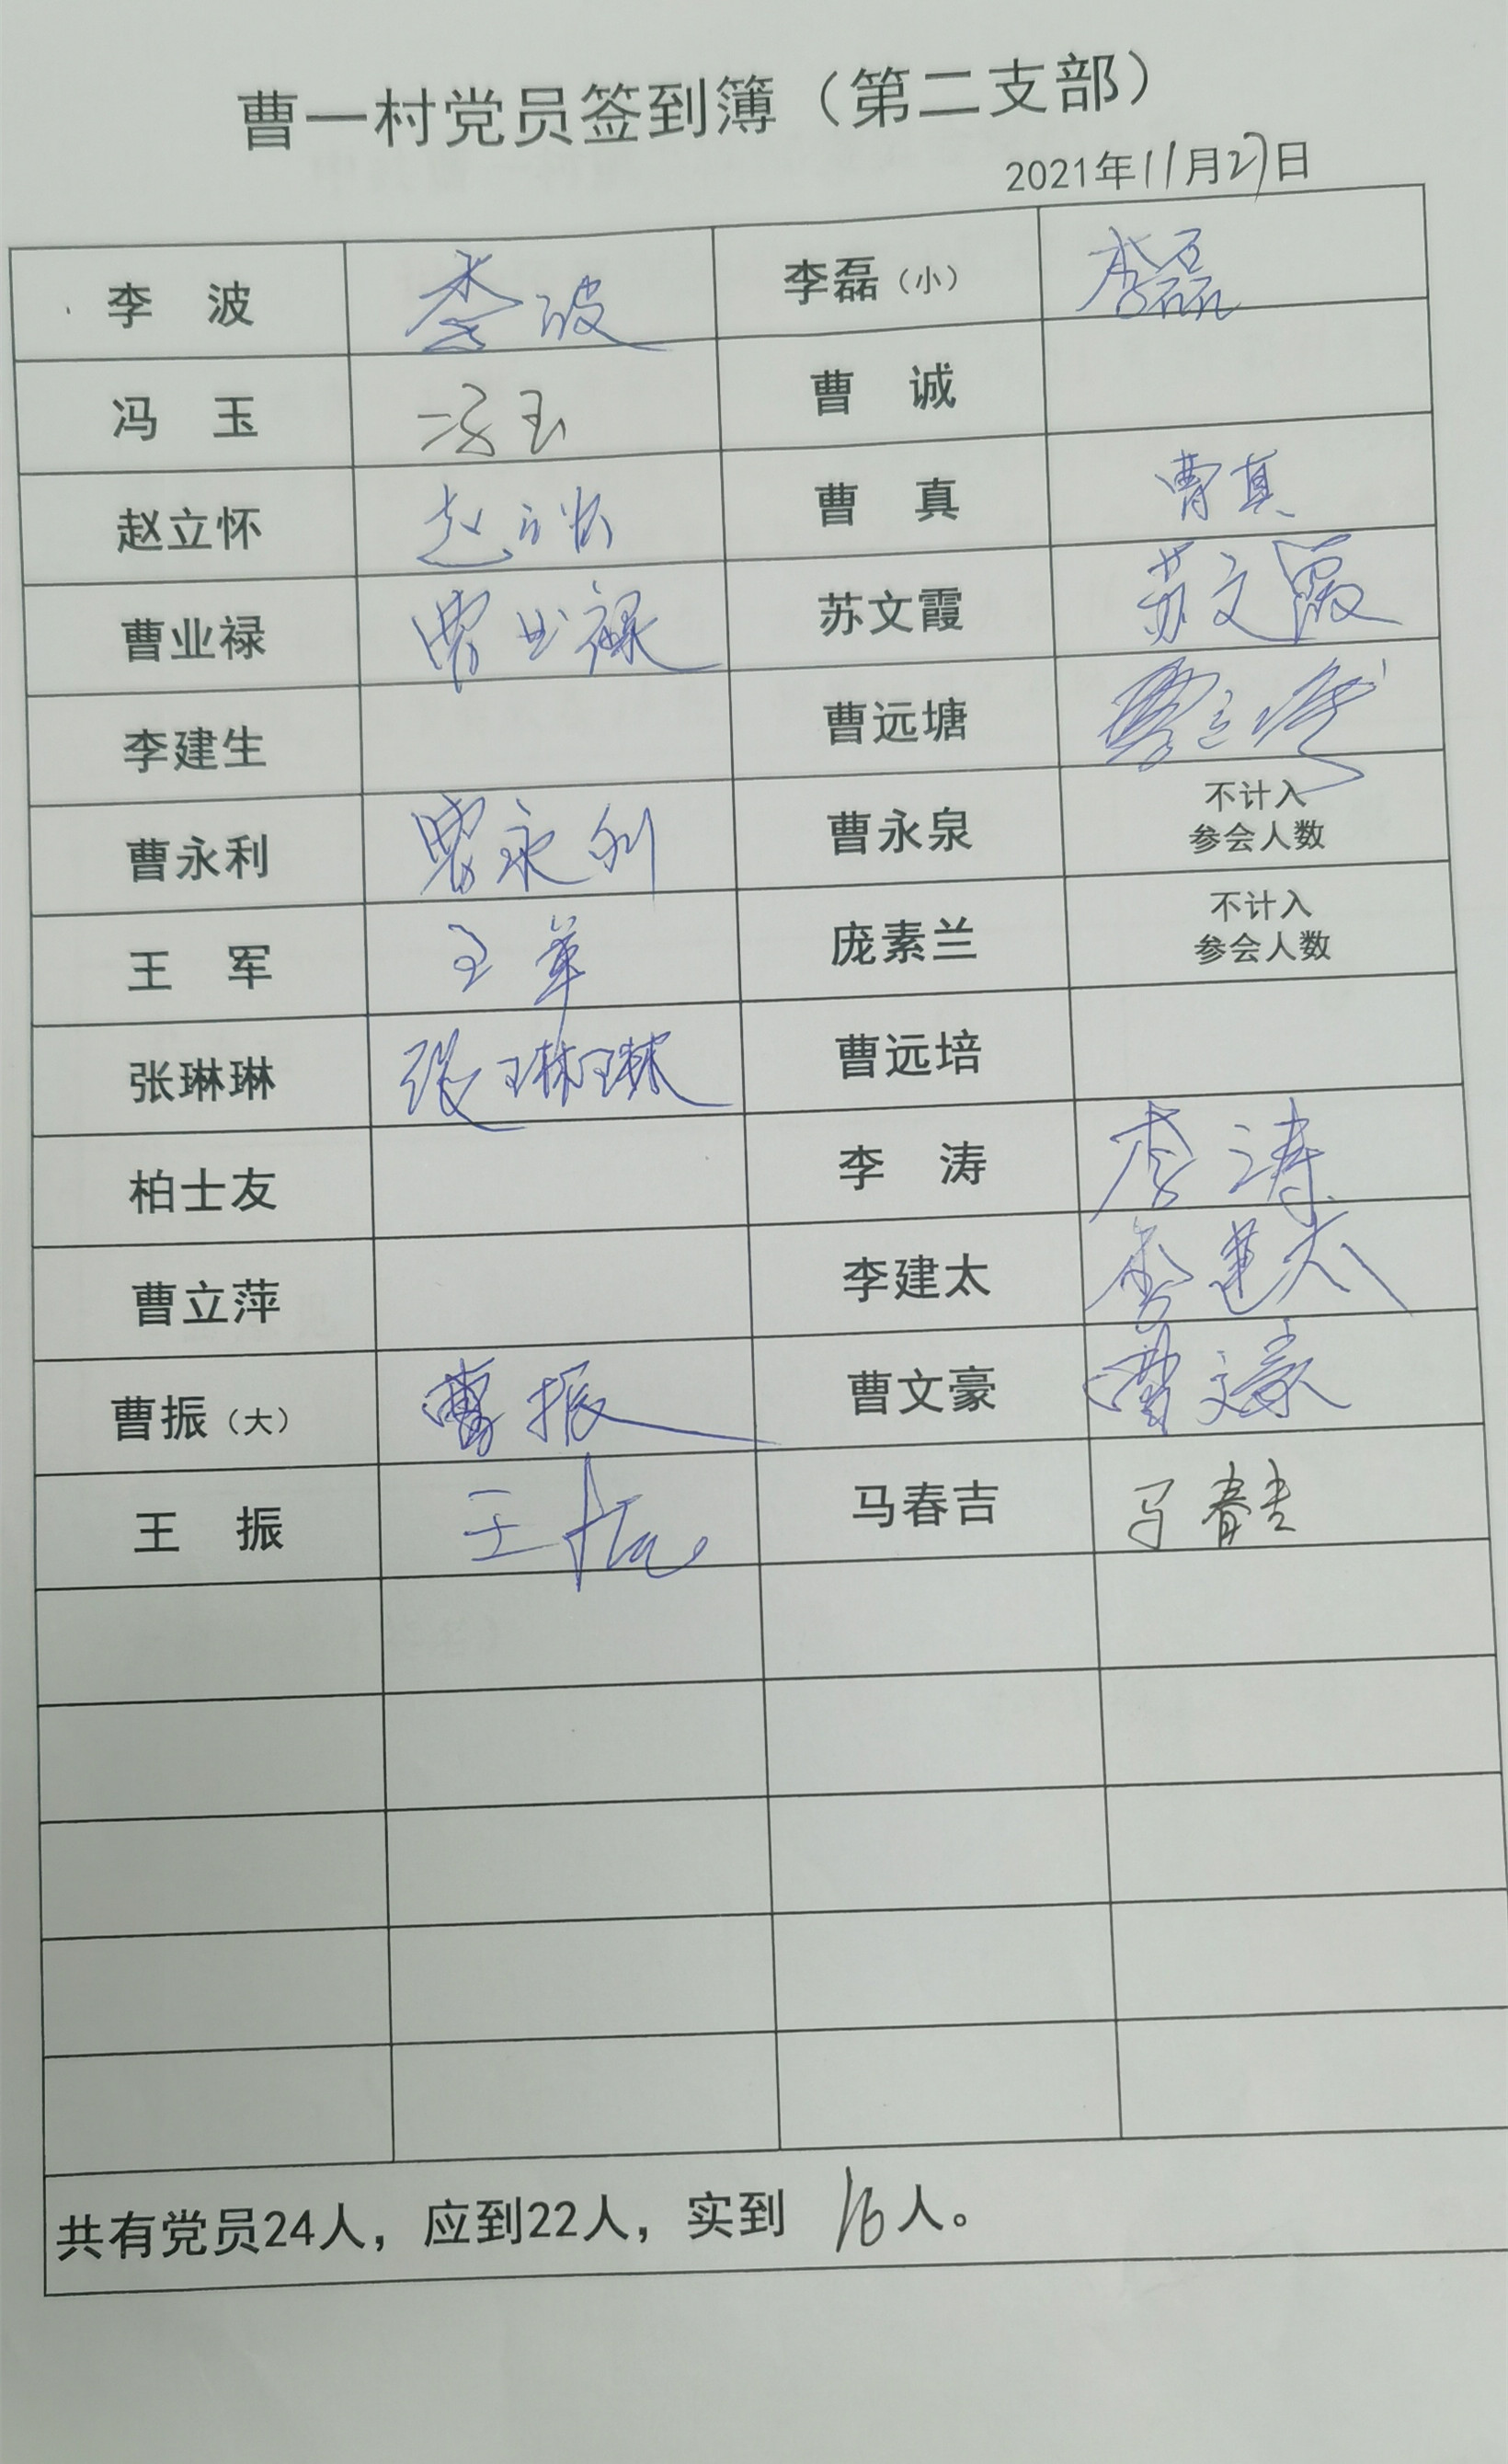 曹一村党员签到簿（第二支部）
2021年11月27日
李 波 李波 李磊（小） 李磊
冯 玉 冯玉 曹 诚
赵立怀 赵立怀 曹 真 曹真
曹业禄 曹业禄 苏文霞 苏文霞
李建生 曹远塘 曹远塘
曹永利 曹永利 曹永泉 不计入
参会人数
王 军 王军 庞素兰 不计入
参会人数
张琳琳 张琳琳 曹远培
柏士友 李 涛 李涛
曹立萍 李建太 李建太
曹振（大） 曹振 曹文豪 曹文豪
王 振 王振 马春吉 马春吉
共有党员24人，应到22人，实到 16人。